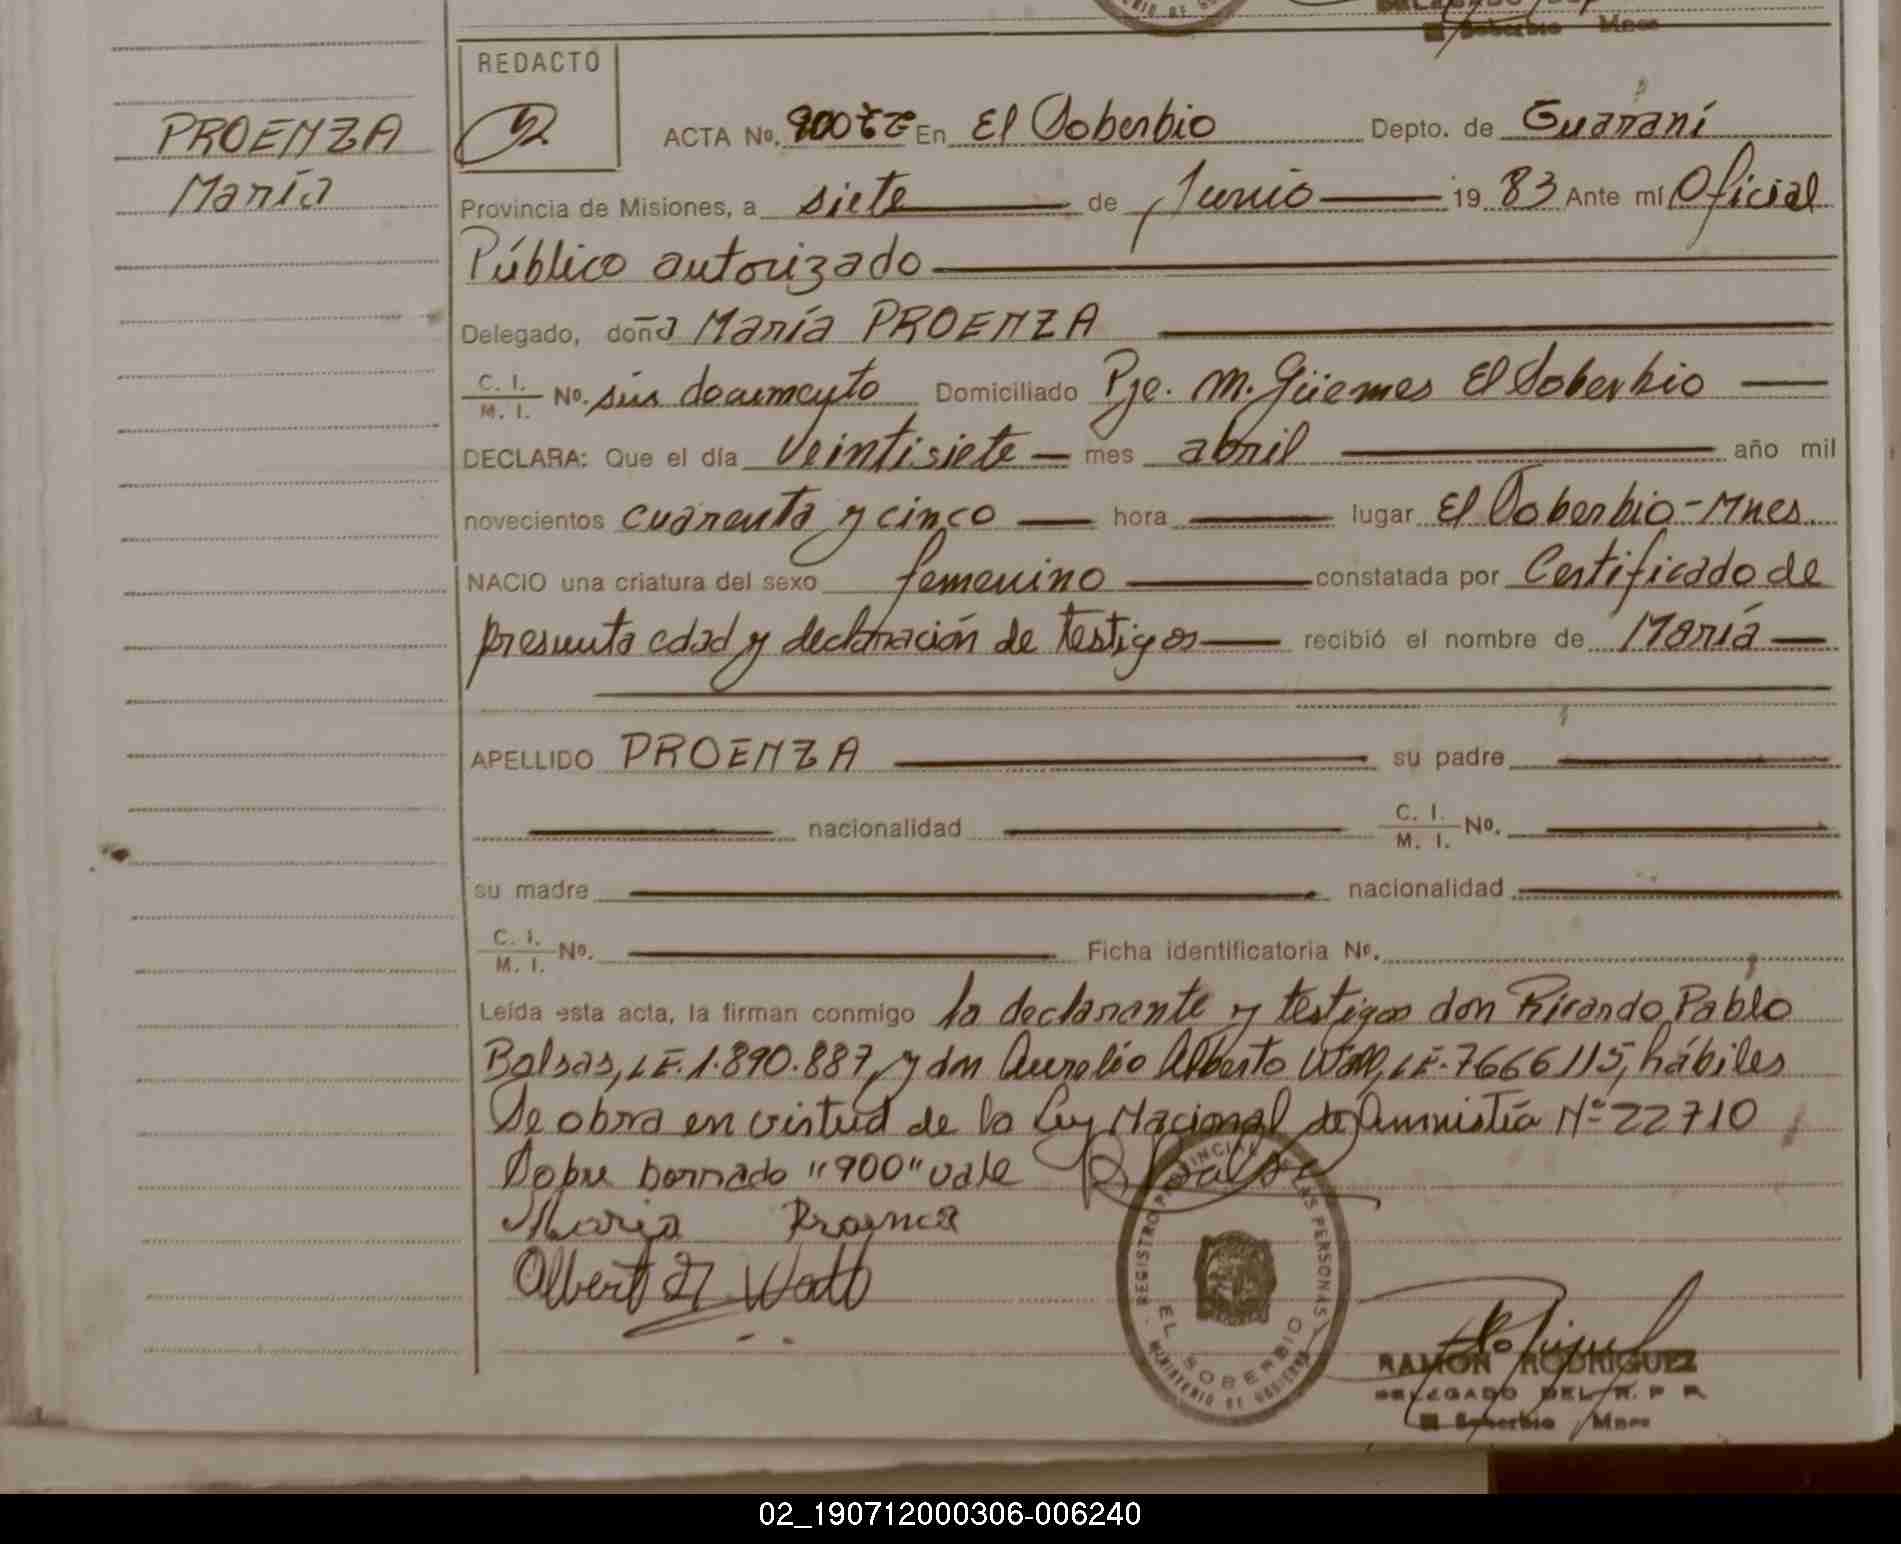 PROENZA
María
REDACTO
ACTA No. 900 En El Soberbio Depto. de Guaraní
Provincia de Misiones, a siete de Junio 19 83 Ante mí Oficial
Público autorizado
Delegado, doña María PROENZA
C. I. / M. I. No. sin documento Domiciliado Pje. M. Güemes El Soberbio
DECLARA: Que el día veintisiete mes abril año mil
novecientos cuarenta y cinco hora lugar El Soberbio - Mnes
NACIO una criatura del sexo femenino constatada por Certificado de
presunta edad y declaración de testigos recibió el nombre de María
APELLIDO PROENZA su padre
nacionalidad C. I. / M. I. No.
su madre nacionalidad
C. I. / M. I. No. Ficha identificatoria No.
Leída esta acta, la firman conmigo la declarante y testigos don Ricardo Pablo
Balsas, LE. 1.890.887, y don Aurelio Alberto LE. 7666115, hábiles
Se obra en virtud de la Ley Nacional de Amnistía N° 22710
Sobre borrado "900" vale
Maria Proenca
REGISTRO PROVINCIAL DE LAS PERSONAS
EL SOBERBIO
MINISTERIO DE GOBIERNO
RAMON RODRIGUEZ
DELEGADO DEL R. P. P.
El Soberbio Mnes
02_190712000306-006240